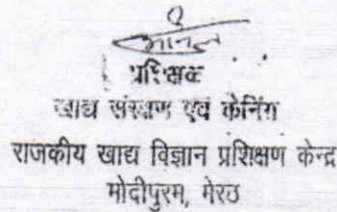 प्रशिक्षक
खाद्य संरक्षण एवं केनिंग
राजकीय खाद्य विज्ञान प्रशिक्षण केन्द्र
मोदीपुरम, मेरठ